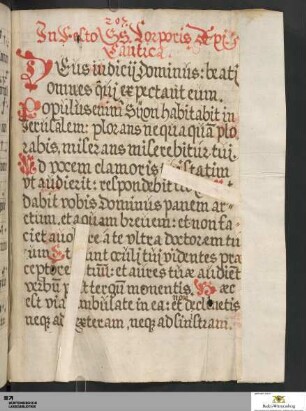 207.
In Festo SS. Corporis Xpi
Cantica.
Deus iudicij Dominus: beati
omnes qui expectant eum.
Populus enim Syon habitabit in
Jerusalem: plorans nequaquā plo
rabis, miserans miserebitur tui.
Ad vocem clamoris statim
ut audierit: respondebit
dabit vobis dominus panem ar-
ctum, et aquam brevem: et non fa-
ciet avolare a te ultra doctorem tu
um. Et erunt oculi tui videntes prae
ceptorem tuum: et aures tuae audient
verbū post tergum monentis. Haec
est via ambulate in ea: et non declinetis
neq, ad dexteram, neq, ad sinistram.
WÜRTTEMBERGISCHE
LANDESBIBLIOTHEK
Baden-Württemberg